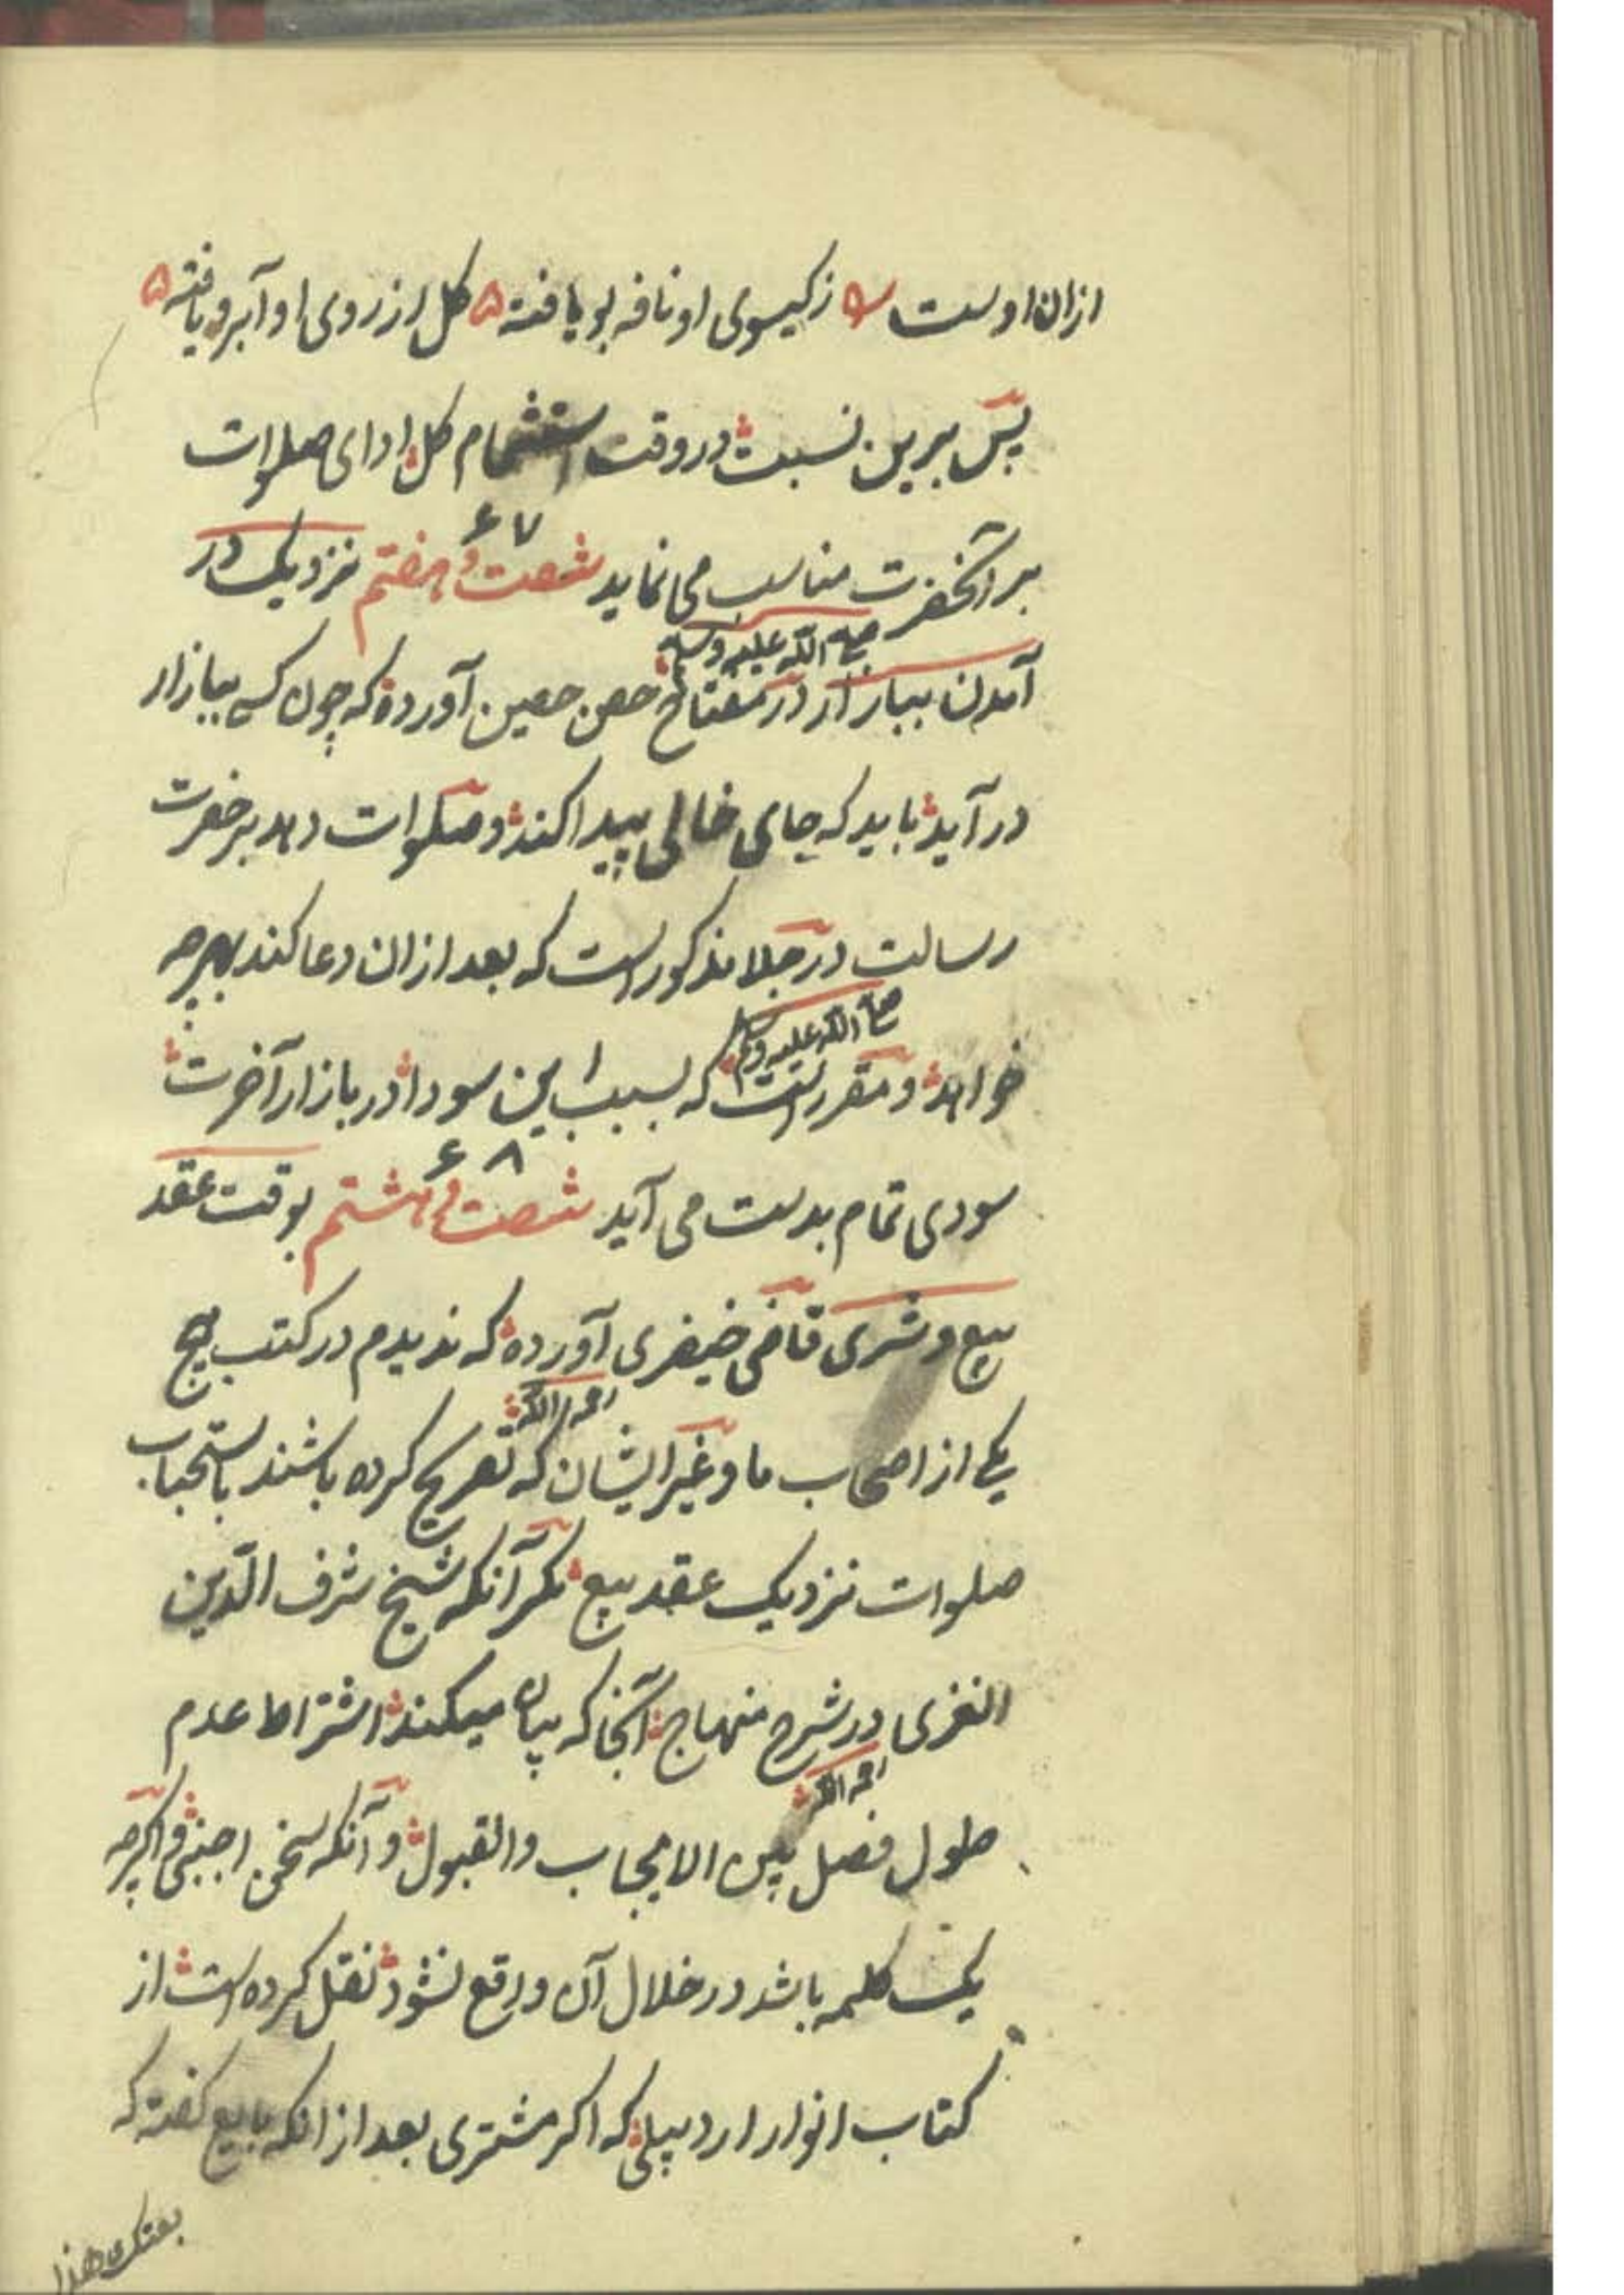 ازان اوست ه زکیسوی او نافه بو یافته ه کل از روی او آبرو یافته ه
پس برین نسبت در وقت استشمام کل ادای صلوات
بر آنحضرت مناسب می نماید شصت و هفتم نزدیک در
۶۷
صلی الله علیه وسلم
آمدن ببازار در مفتاح حصن حصین آورده که چون کسی ببازار
در آید باید که جای خالی پیدا کند و صلوات دهد بر حضرت
رسالت در جلا مذکور است که بعد ازان دعا کند بهرچه
صلی الله علیه وسلم
خواهد و مقرر است که بسبب این سودا در بازار آخرت
سودی تمام بدست می آید شصت و هشتم بوقت عقد
۶۸
بیع و شری قاضی خیضری آورده که ندیدم در کتب هیچ
رحمه الله
یکی از اصحاب ما و غیر ایشان که تصریح کرده باشند باستحباب
صلوات نزدیک عقد بیع مکر آنکه شیخ شرف الدین
الغزی در شرح منهاج آنجا که بیان میکند اشتراط عدم
رحمه الله
طول فصل بین الایجاب والقبول و آنکه سخن اجنبی و اکرچه
یک کلمه باشد در خلال آن واقع نشود نقل کرده است از
کتاب انوار اردبیلی که اکر مشتری بعد از انکه بایع کفته که
بعتک هذا